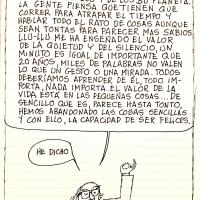 PLANETA.
LA GENTE PIENSA QUE TIENEN QUE
CORRER PARA ATRAPAR EL TIEMPO Y
HABLAR TODO EL RATO DE COSAS AUNQUE
SEAN TONTAS PARA PARECER MAS SABIOS.
LLU-LLU ME HA ENSEÑADO EL VALOR
DE LA QUIETUD Y DEL SILENCIO, UN
MINUTO ES IGUAL DE IMPORTANTE QUE
20 AÑOS, MILES DE PALABRAS NO VALEN
LO QUE UN GESTO O UNA MIRADA. TODOS
DEBERÍAMOS APRENDER DE ÉL, TODO IM-
PORTA, NADA IMPORTA. EL VALOR DE LA
VIDA ESTÁ EN LAS PEQUEÑAS COSAS... DE
SENCILLO QUE ES, PARECE HASTA TONTO,
HEMOS ABANDONADO LAS COSAS SENCILLAS
Y CON ELLO, LA CAPACIDAD DE SER FELICES.
HE DICHO